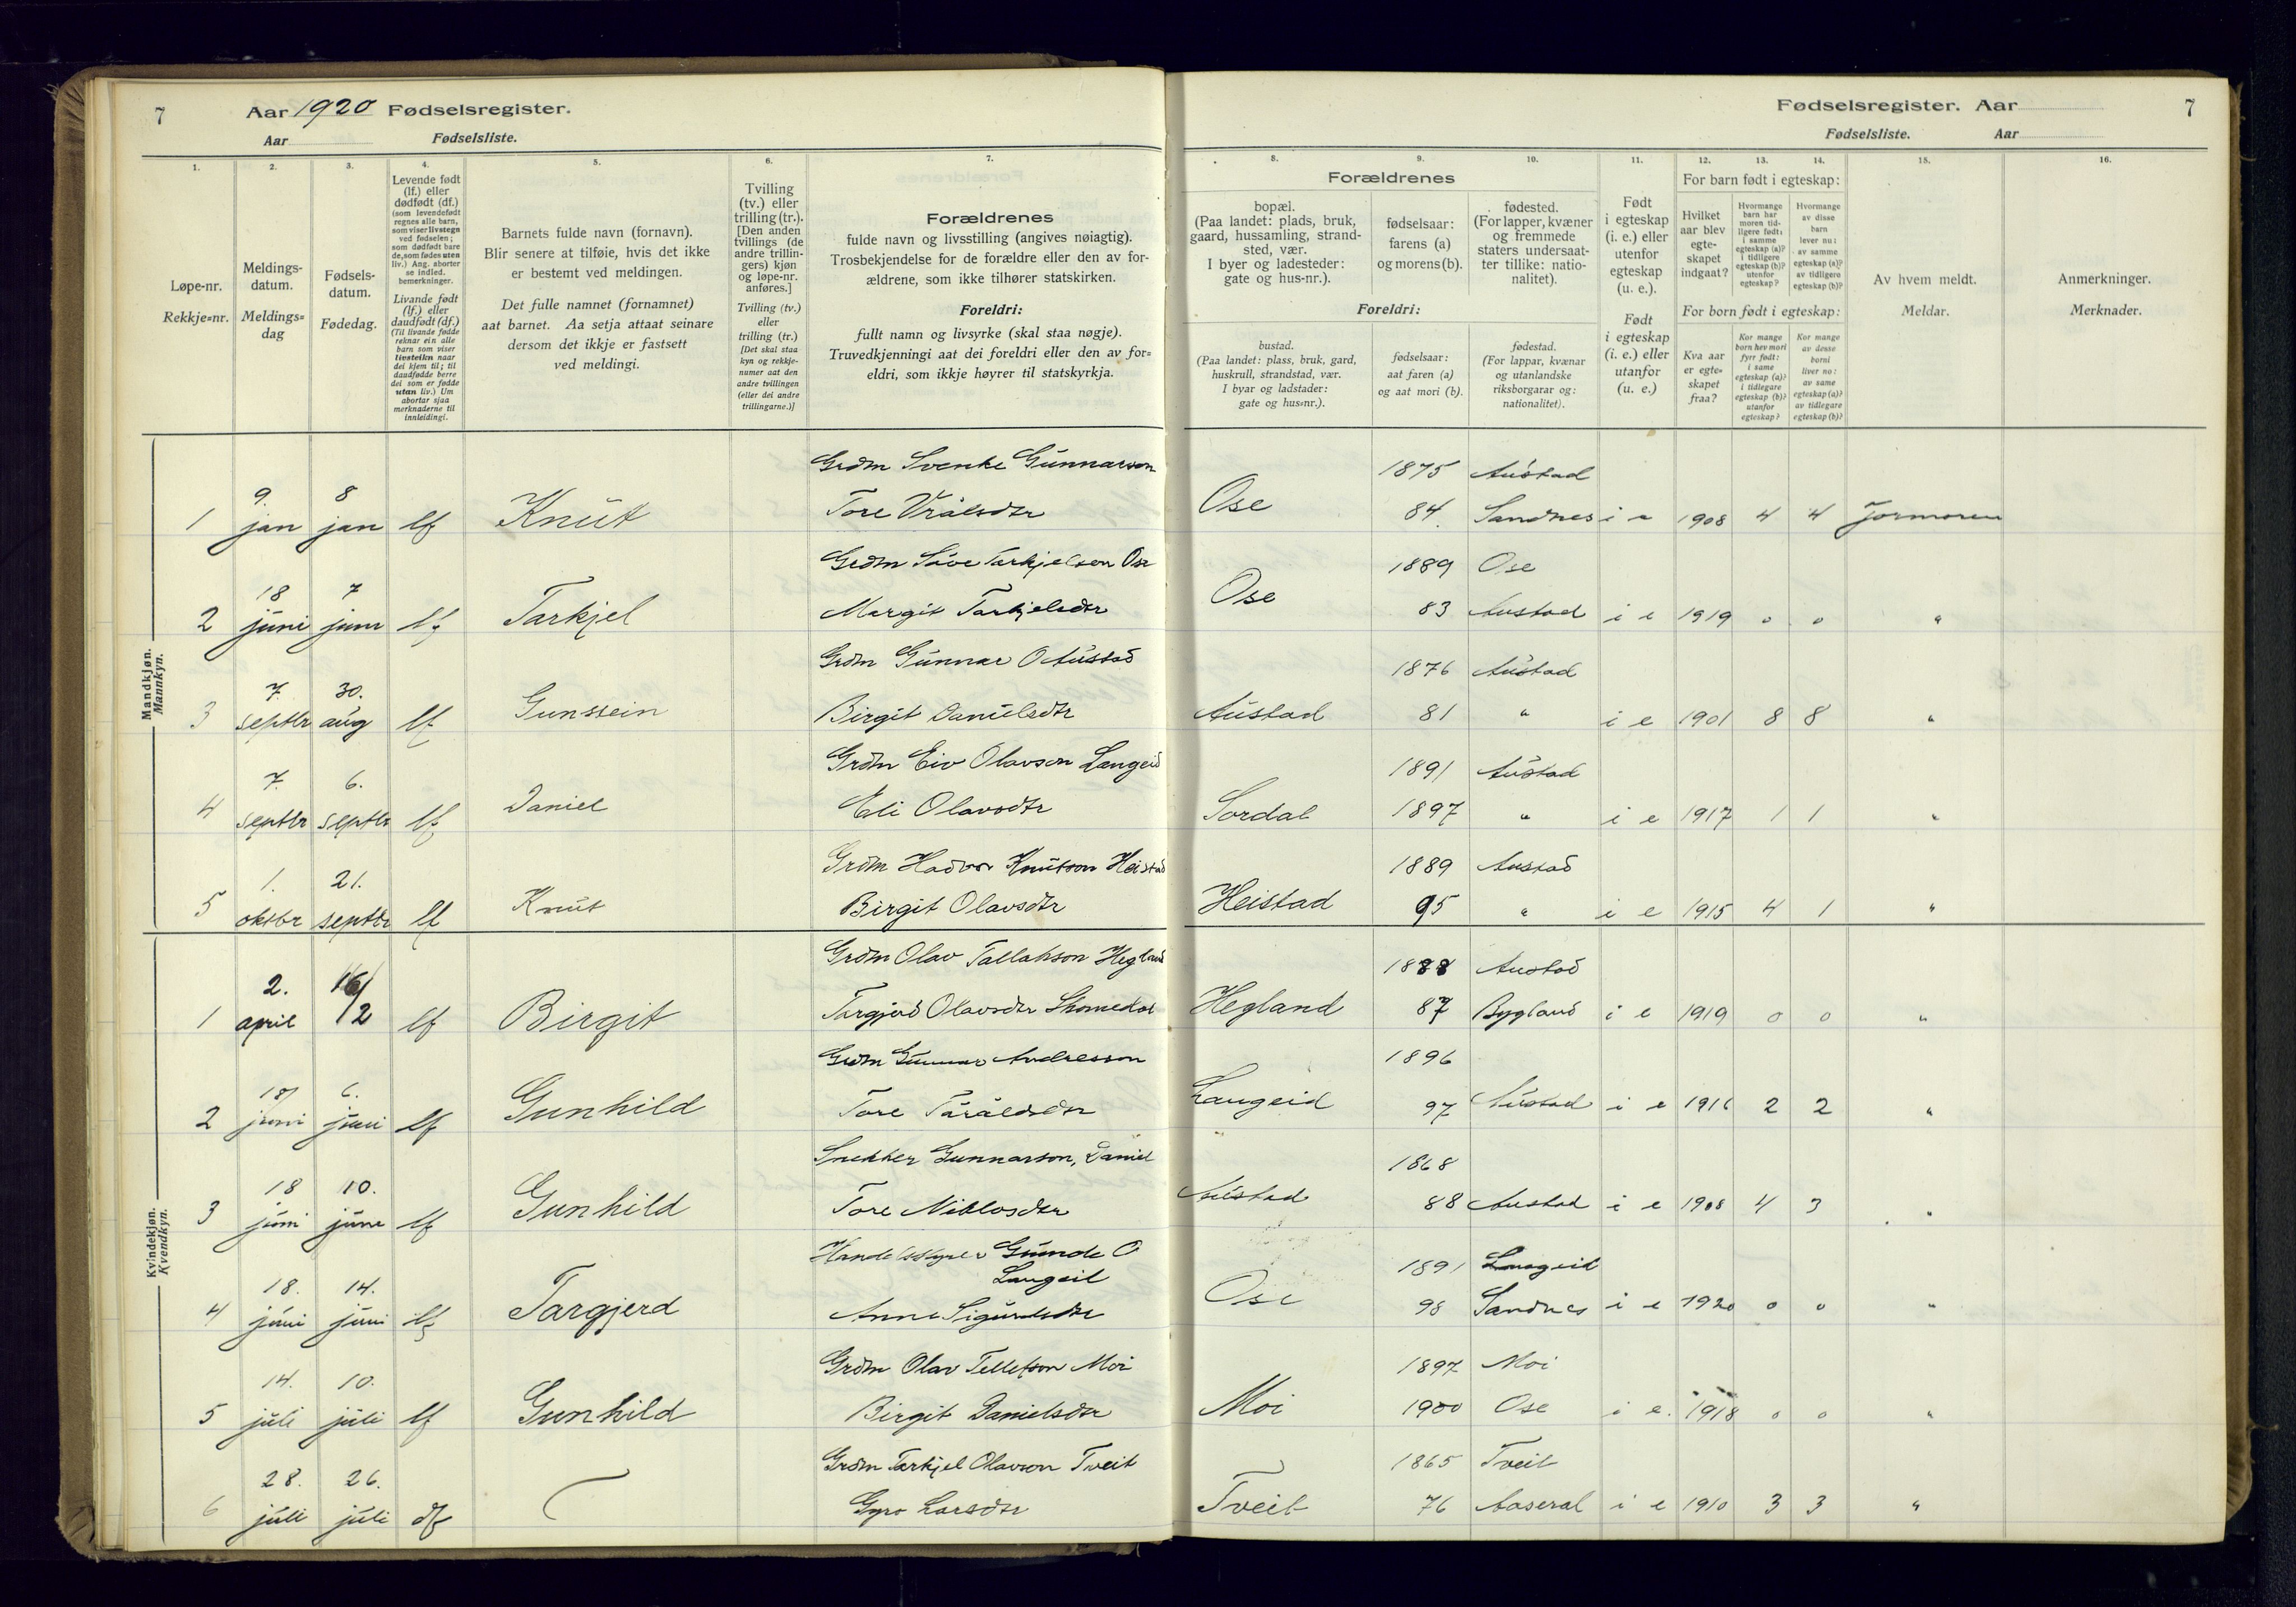 7 Aar 1920 Fødselsregister.
Aar Fødselsliste.
Fødselsregister. Aar 7
Fødselsliste. Aar
1. 2. 3. 4. 5. 6. 7.
Løpe-nr.
Rekkje-nr.
Meldings-
datum.
Meldings-
dag
Fødsels-
datum.
Fødedag.
Levende født
(lf.) eller
dødfødt (df.)
(som levendefødt
regnes alle barn,
som viser livstegn
ved fødselen;
som dødfødt bare
de, som fødes uten
liv.) Ang. aborter
se indled.
bemerkninger.
Livande født
(lf.) eller
daudfødt (df.)
(Til livande fødde
reknar ein alle
barn som viser
livsteikn naar
dei kjem til; til
daudfødde berre
dei som er fødde
utan liv.) Um
abortar sjaa
merknaderne til
innleidingi.
Barnets fulde navn (fornavn).
Blir senere at tilføie, hvis det ikke
er bestemt ved meldingen.
Det fulle namnet (fornamnet)
aat barnet. Aa setja attaat seinare
dersom det ikkje er fastsett
ved meldingi.
Tvilling
(tv.) eller
trilling (tr.).
[Den anden
tvillings (de
andre trillin-
gers) kjøn
og løpe-nr.
anføres.]
Tvilling (tv.)
eller
trilling (tr.)
[Det skal staa
kyn og rekkje-
numer aat den
andre tvillingen
(eller dei andre
trillingarne.)]
Forældrenes
fulde navn og livsstilling (angives nøiagtig).
Trosbekjendelse for de forældre eller den av for-
ældrene, som ikke tilhører statskirken.
Foreldri:
fullt namn og livsyrke (skal staa nøgje).
Truvedkjenningi aat dei foreldri eller den av for-
eldri, som ikkje høyrer til statskyrkja.
8. 9. 10. 11. 12. 13. 14. 15. 16.
Forældrenes
bopæl.
(Paa landet: plads, bruk,
gaard, hussamling, strand-
sted, vær.
I byer og ladesteder:
gate og hus-nr.).
fødselsaar:
farens (a)
og morens (b).
fødested.
(For lapper, kvæner
og fremmede
staters undersaat-
ter tillike: natio-
nalitet).
Foreldri:
bustad.
(Paa landet: plass, bruk, gard,
huskrull, strandstad, vær.
I byar og ladstader:
gate og hus-nr.).
fødselsaar:
aat faren (a)
og aat mori (b).
fødestad.
(For lappar, kvænar
og utanlandske
riksborgarar og:
nationalitet).
Født
i egteskap
(i. e.) eller
utenfor
egteskap
(u. e.).
Født
i egteskap
(i. e.) eller
utanfor
(u. e.)
For barn født i egteskap:
Hvilket
aar blev
egte-
skapet
indgaat?
Hvormange
barn har
moren tid-
ligere født:
i samme
egteskap (a)?
i tidligere
egteskap (b)?
utenfor
egteskap?
Hvormange
av disse
barn
lever nu:
av samme
egteskap (a)?
av tidligere
egteskap (b)?
For born født i egteskap:
Kva aar
er egte-
skapet
fraa?
Kor mange
born hev mori
fyrr født:
i same
egteskap (a)?
i tidlegare
egteskap (b)?
utanfor
egteskap?
Kor mange
av desse
borni
liver no:
av same
egteskap (a)?
av tidlegare
egteskap (b)?
Av hvem meldt.
Meldar.
Anmerkninger.
Merknader.
Mandkjøn.
Mannkyn.
Grdm Svenke Gunnarson 1875 Austad
1 9. jan 8 jan lf Knut Tore Vrålsdtr Ose 84. Sandnes i e 1908 4 4 Jormoren
Grdm Såve Tarkjelson Ose 1889 Ose
2 18 juni 7 juni lf Tarkjel Margit Tarkjelsdtr Ose 83 Austad i e 1919 0 0 "
Grdm Gunnar O Austad 1876 Austad
3 7. septbr 30. aug lf Gunstein Birgit Danielsdtr Austad 81 " i e 1901 8 8 "
Grdm Eiv Olavson Langeid 1891 Austad
4 7. septbr 6. septbr lf Daniel Eli Olavsdtr Sordal 1897 " i e 1917 1 1 "
Grdm Hadvor Knutson Heistad 1889 Austad
5 1. oktbr 21. septbr lf Knut Birgit Olavsdtr Heistad 95 " i e 1915 4 1 "
Kvindekjøn.
Kvendkyn.
Grdm Olav Tallakson Hegland 1888 Austad
1 2. april 16/2 lf Birgit Targjerd Olavsdtr Skomedal Hegland 87 Bygland i e 1919 0 0 "
Grdm Gunnar Andresson 1896
2 18 juni 6. juni lf Gunhild Tore Taraldsdtr Langeid 97 Austad i e 1916 2 2 "
Snekker Gunnarson, Daniel 1868
3 18 juni 10. juni lf Gunhild Tore Niklosdtr Austad 88 Austad i e 1908 4 3 "
Handelsstyrer Gunde O
Langeid 1891 Langeid
4 18. juni 14. juni lf Targjerd Anne Sigurdsdtr Ose 98 Sandnes i e 1920 0 0 "
Grdm Olav Tellefson Moi 1897 Moi
5 14. juli 10. juli lf Gunhild Birgit Danielsdtr Moi 1900 Ose i e. 1918 0 0 "
Grdm Tarkjel Olavson Tveit 1865 Tveit
6 28. juli 26. juli df Gyro Larsdtr Tveit 76 Aaseral i e 1910 3 3 "